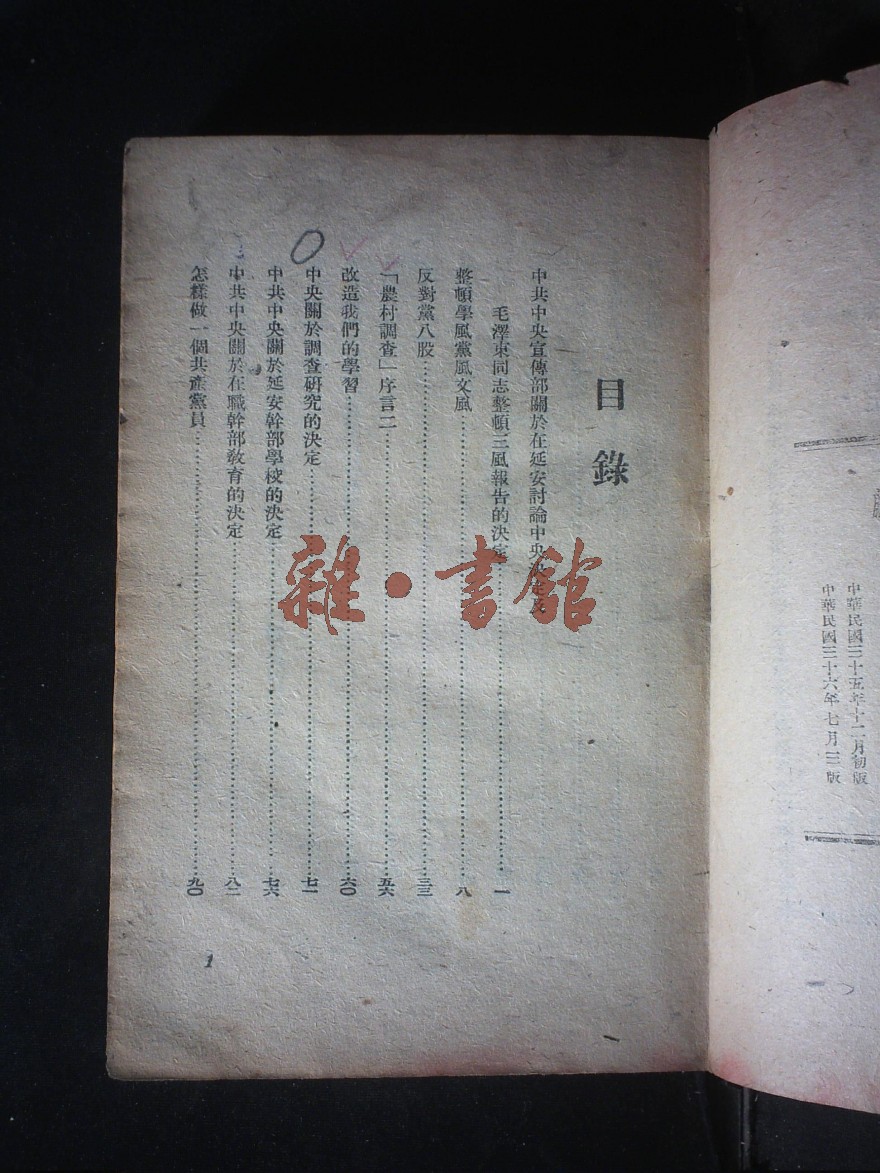 中華民國三十五年十二月初版
中華民國三十六年七月三版
目錄
中共中央宣傳部關於在延安討論中央決定及
毛澤東同志整頓三風報告的決定……一
整頓學風黨風文風……八
反對黨八股……三三
「農村調查」序言二……五六
改造我們的學習……六〇
中央關於調查研究的決定……七一
中共中央關於延安幹部學校的決定……七六
中共中央關於在職幹部教育的決定……八二
怎樣做一個共產黨員……九〇
1
雜·書館